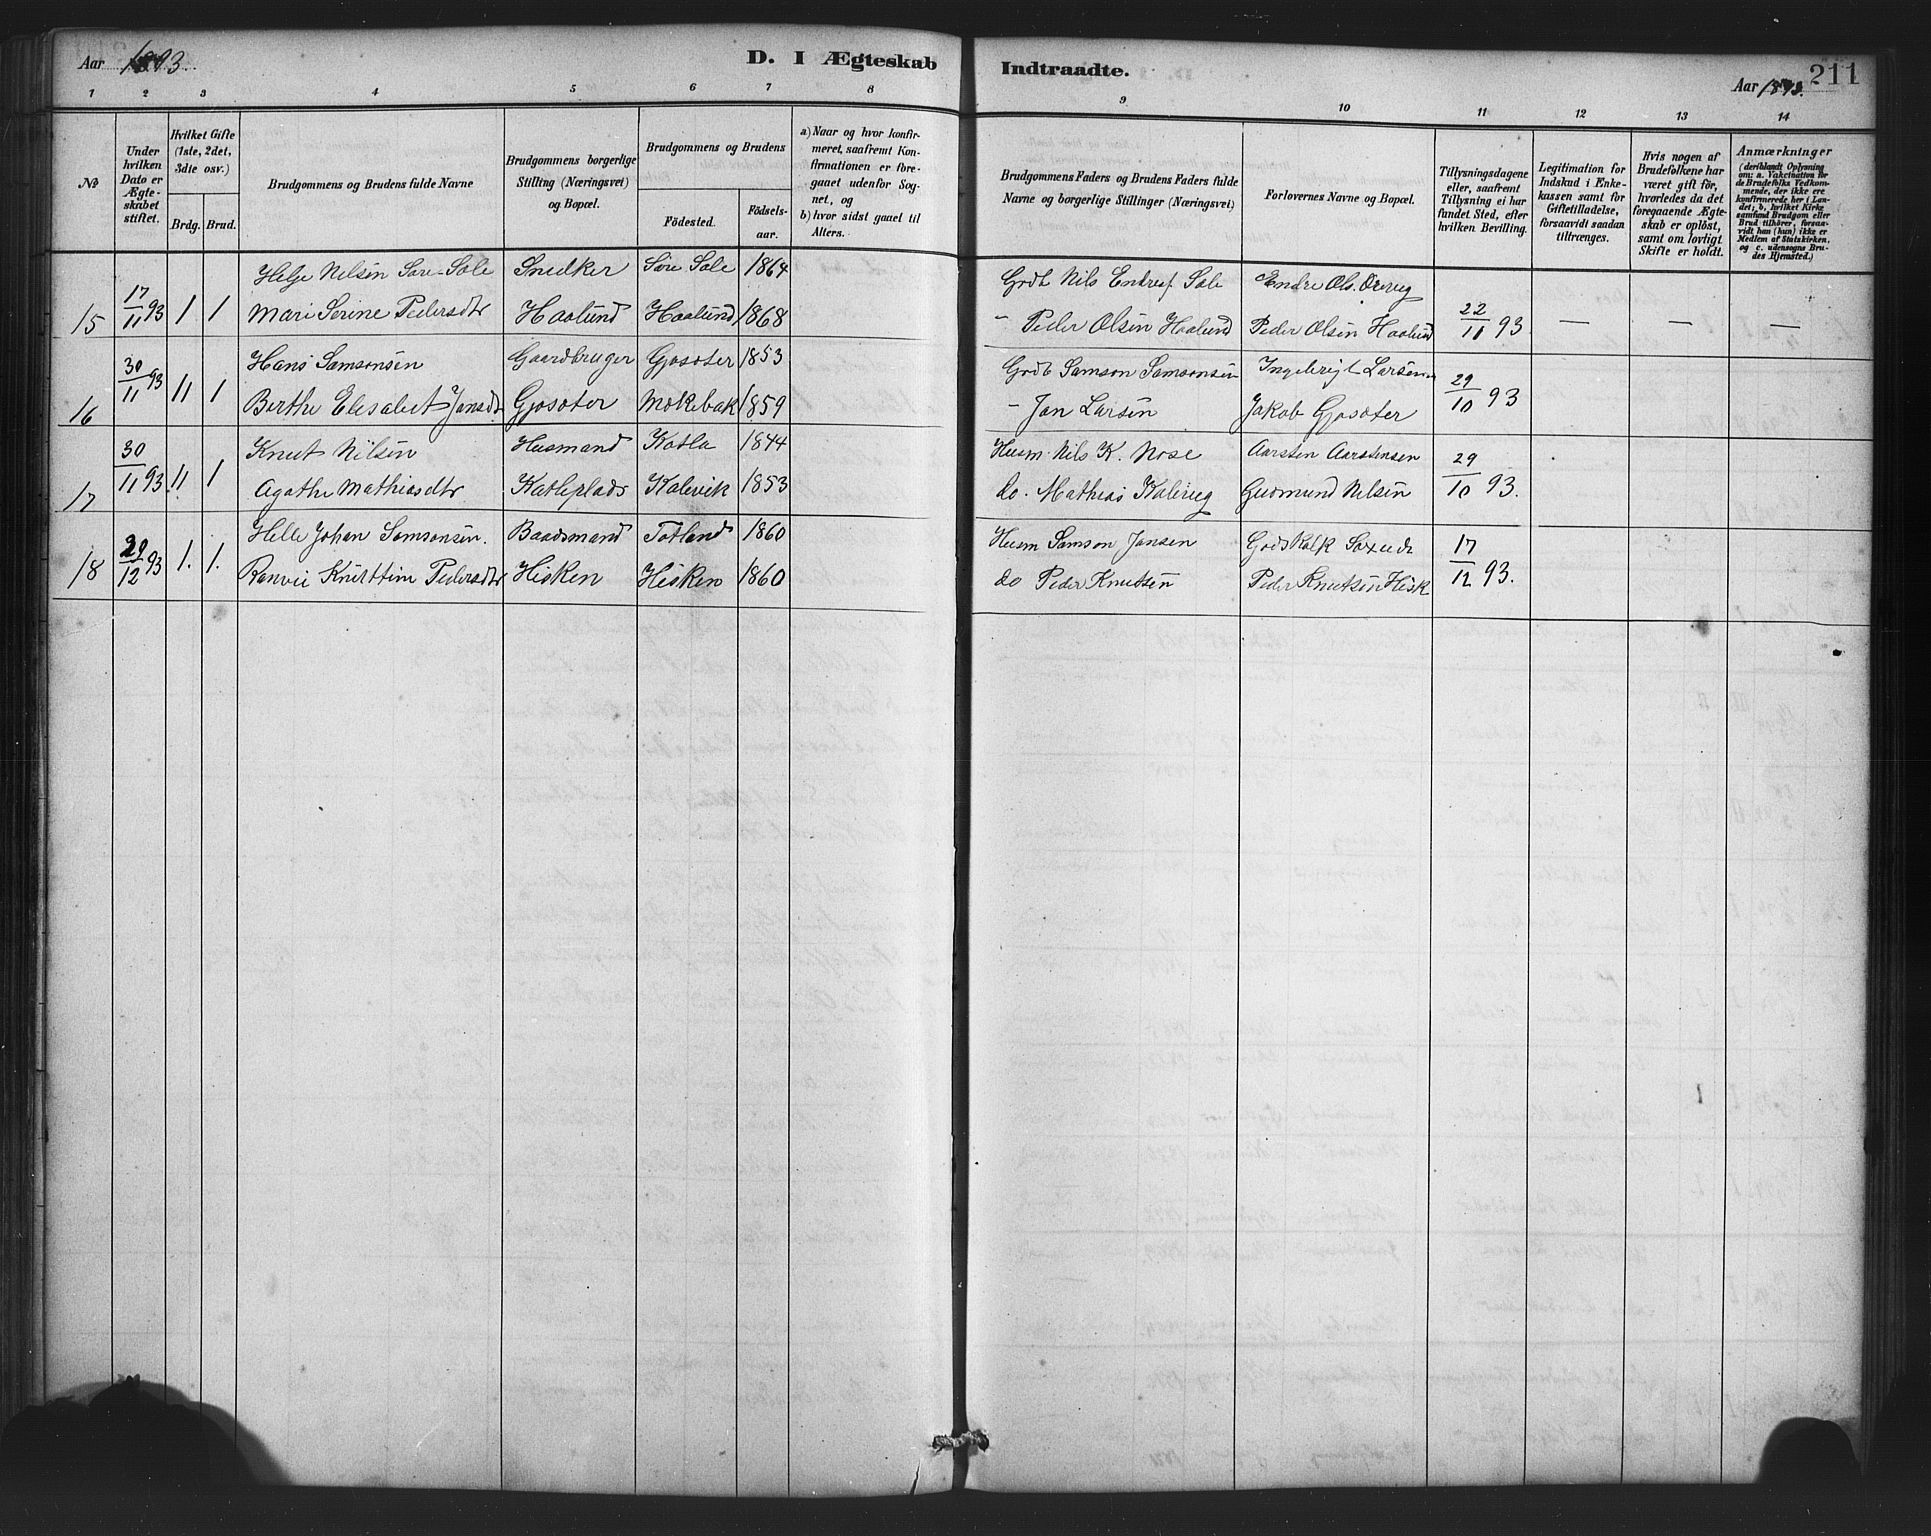 Aar 1893.
D. I Ægteskab
Indtraadte.
Aar 1893.
211
1 2 3 4 5 6 7 8
9 10 11 12 13 14
№
Under hvilken Dato er Ægteskabet stiftet.
Hvilket Gifte (1ste, 2det, 3dte osv.)
Brdg. Brud.
Brudgommens og Brudens fulde Navne
Brudgommens borgerlige Stilling (Næringsvei) og Bopæl.
Brudgommens og Brudens
Födested.
Födselsaar.
a) Naar og hvor konfirmeret, saafremt Konfirmationen er foregaaet udenfor Sognet, og
b) hvor sidst gaaet til Alters.
Brudgommens Faders og Brudens Faders fulde Navne og borgerlige Stillinger (Næringsvei)
Forlovernes Navne og Bopæl.
Tillysningsdagene eller, saafremt Tillysning ei har fundet Sted, efter hvilken Bevilling.
Legitimation for Indskud i Enkekassen samt for Giftetilladelse, forsaavidt saadan tiltrænges.
Hvis nogen af Brudefolkene har været gift för, hvorledes da det foregaaende Ægteskab er oplöst, samt om lovligt Skifte er holdt.
Anmærkninger
(deriblandt Oplysning om: a. Vakcination for de Brudefolks Vedkommende, der ikke ere konfirmerede her i Landet; b. hvilket Kirkesamfund Brudgom eller Brud tilhörer, forsaavidt han (hun) ikke er Medlem af Statskirken, og c. udensogns Brudes Hjemsted.)
15 17/11 93 1 1 Helje Nilsen Søre-Sole Snedker Søre Sole 1864 Grdb Nils Endres. Sole Endre Ols.
Mari Serine Pedersdtr Haalund Haalund 1868 – Peder Olsen Haalund Peder Olsen Haalund 22/11 93 — — —
16 30/11 93 11 1 Hans Samsonsen Gaardbruger Gjosøter 1853 Grdb Samson Samsonsen Ingebrigt Larsen
Berthe Elisabet Jansdtr Gjosøter Møkebak 1859 – Jan Larsen Jakob Gjosøter 29/10 93
17 30/11 93 11 1 Knut Nilsen Husmand Katla 1844 Husm. Nils K. Nose Aarsten Aarstensen
Agathe Mathiasdtr Katleplads Kalevik 1853 do. Mathias Gudmund Nilsen 29/10 93.
18 29/12 93 1. 1. Helle Johan Samsonsen. Baadsmand Totland 1860 Husm Samson Jansen Godskalk
Ranvei Pedersdtr Hisken Hisken 1860 do Peder Knutsen Peder Knutsen Hisk 17/12 93.